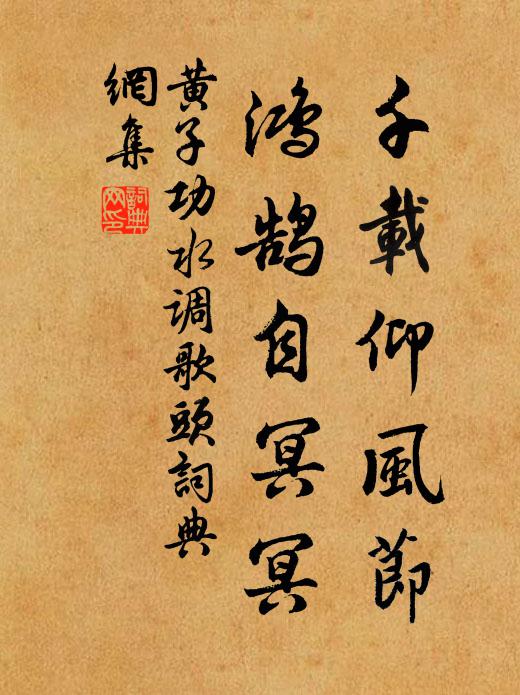 千載仰風節
鴻鵠自冥冥
黄子功水调歌頭詞典
網集
詞典
网印